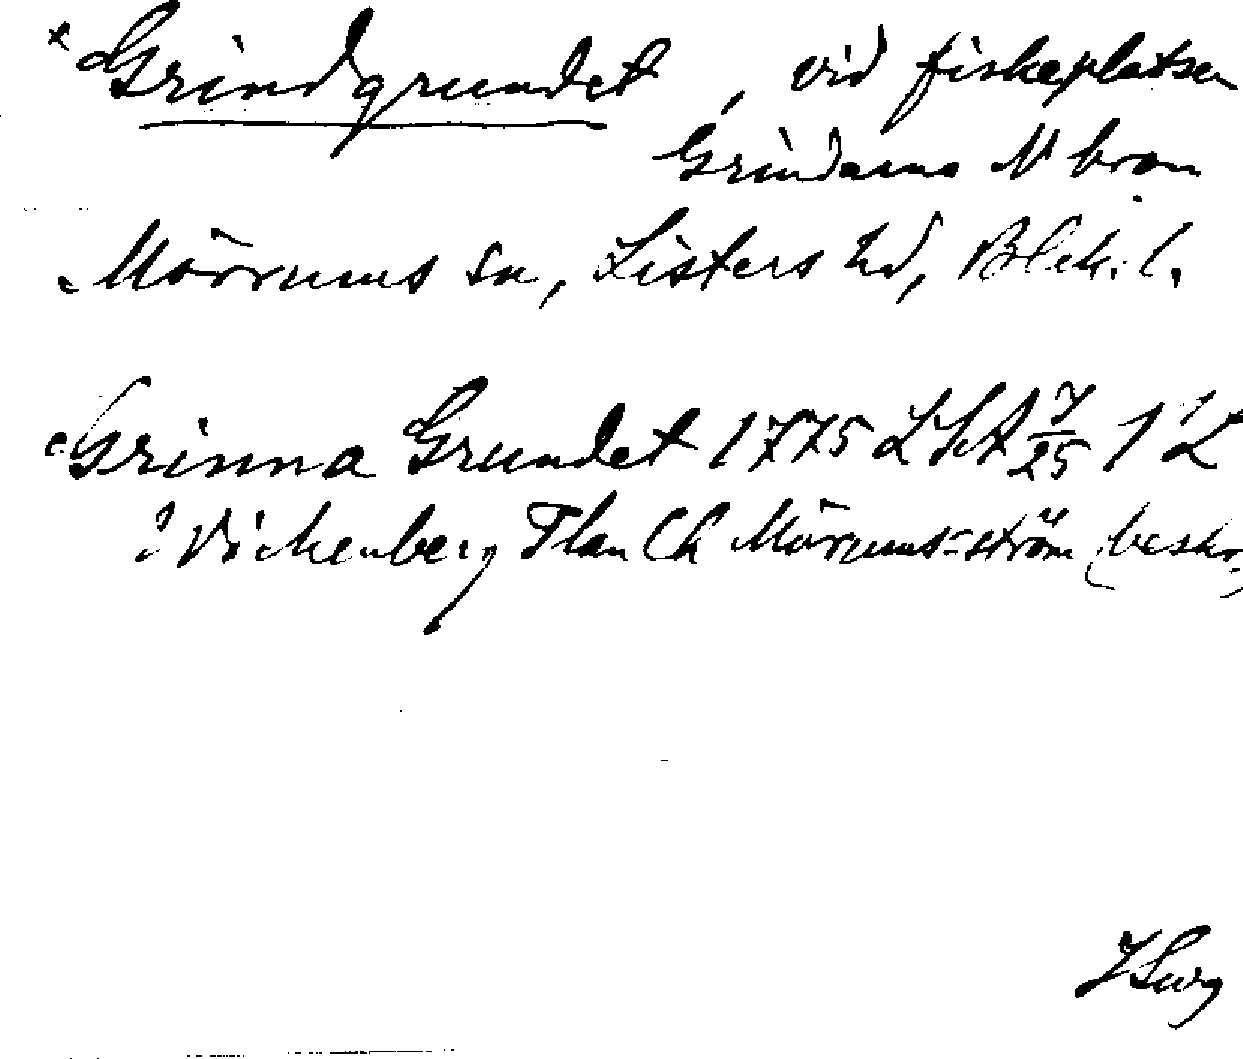 × Grindgrundet, vid fiskeplatsen
Grindarna N bron
Mörrums sn, Listers hd, Blek. l.
Grinna Grundet 1775 LSA 7/25 1 L
Wickenberg Plan Ch Mörrums-ström (beskr.)